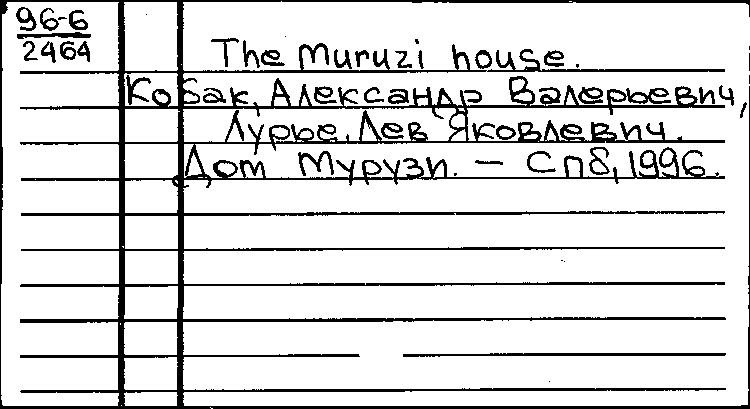 96-6
2464
The Muruzi house.
Кобак, Александр Валерьевич,
Лурье, Лев Яковлевич.
Дом Мурузи. — СПб, 1996.